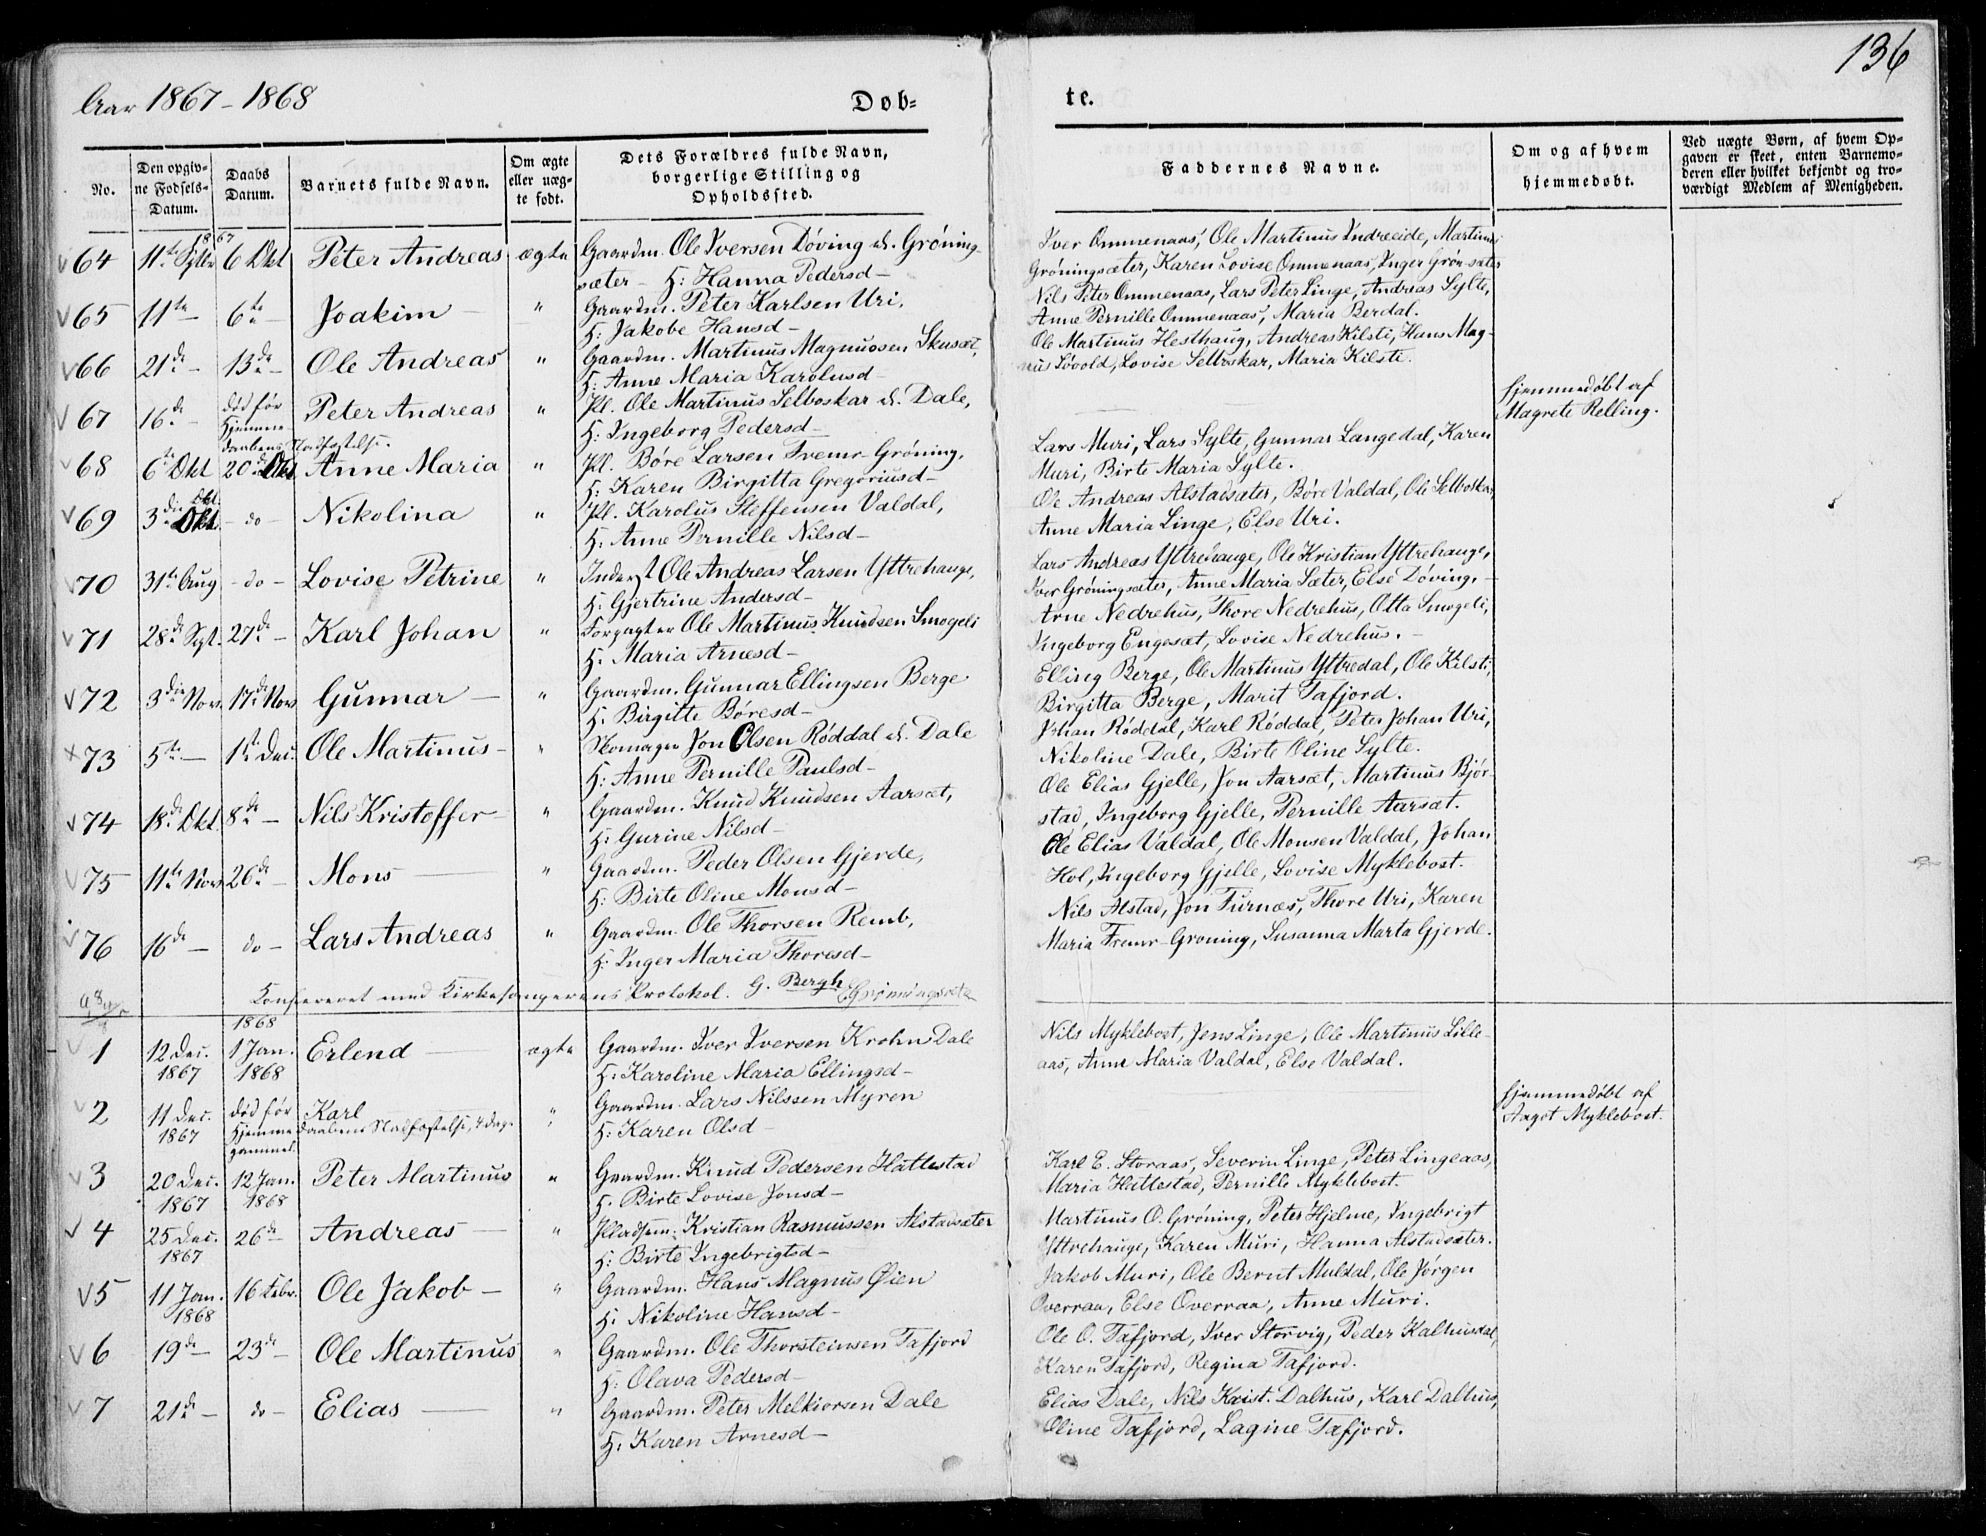 Aar 1867-1868
Døb-
te.
136
No.
Den opgiv-
ne Fødsels-
Datum.
Daabs
Datum.
Barnets fulde Navn.
Om ægte
eller uæg-
te født.
Dets Forældres fulde Navn,
borgerlige Stilling og
Opholdssted.
Faddernes Navne.
Om og af hvem
hjemmedøbt.
Ved uægte Børn, af hvem Op-
gaven er skeet, enten Barnemo-
deren eller hvilket bekjendt og tro-
værdigt Medlem af Menigheden.
1867
64 11te Sptbr 6 Okt Peter Andreas ægte Gaardm. Ole Iversen Døving el. Grøning
sæter – H: Hanna Pedersd –
Iver Ommenaas, Ole Martinus Indreeide, Martinus
Grøningsæter, Karen Lovise Ommenaas, Inger Grøn-sæter
65 11te 6te Joakim – " Gaardm. Peter Karlsen Uri,
H: Jakobe Hansd –
Nils Peter Ommenaas, Lars Peter Linge, Andreas Sylte,
Anne Pernille Ommenaas, Maria Berdal.
66 21de – 13de – Ole Andreas " Gaardm. Martinus Magnussen Skusæt,
H: Anne Maria Karolusd –
Ole Martinus Hesthaug, Andreas Kilsti, Hans Mag-
nus Løvold, Lovise Selboskar, Maria Kilsti.
67 16de – død før
Hjemme
daabens Stadfæstelse. Peter Andreas " Pl. Ole Martinus Selboskar el. Dale,
H: Ingeborg Pedersd –
Hjemmedøbt af
Magrete Relling.
68 6te Okt 20de Okt Anne Maria " Pl. Børe Larsen Fremr-Grøning,
H: Karen Birgitta Gregoriusd –
Lars Muri, Lars Sylte, Gunnar Langedal, Karen
Muri, Birte Maria Sylte.
69 3die Okt. – do – Nikolina " Pl. Karolus Steffensen Valdal,
H: Anne Pernille Nilsd –
Ole Andreas Alstadsæter, Børe Valdal, Ole Selboskar,
Anne Maria Linge, Else Uri.
70 31te Aug – do – Lovise Petrine " Inderst Ole Andreas Larsen Yttrehauge,
H: Gjertrine Andersd –
Lars Andreas Yttrehauge, Ole Kristian Yttrehauge,
Iver Grøningsæter, Anne Maria Sæter, Else Døving. –
71 28de Sept. 27de – Karl Johan " Forpagter Ole Martinus Knudsen Smogeli
H: Maria Arnesd –
Arne Nedrehus, Thore Nedrehus, Otta Smogeli,
Ingeborg Engeset, Lovise Nedrehus. –
72 3die Nov. 17de Nov Gunnar – " Gaardm. Gunnar Ellingsen Berge
H: Birgitte Børesd –
Elling Berge, Ole Martinus Yttredal, Ole Kilsti,
Birgitta Berge, Marit Tafjord.
73 5te – 1ste Dec. Ole Martinus – " Skomager Jon Olsen Røddal el. Dale
H: Anne Pernille Paulsd –
Johan Røddal, Karl Røddal, Peter Johan Uri,
Nikoline Dale, Birte Oline Sylte.
74 18de Okt 8de – Nils Kristoffer – " Gaardm. Knud Knudsen Aarsæt,
H: Gurine Nilsd –
Ole Elias Gjelle, Jon Aarsæt, Martinus Bjør-
stad, Ingeborg Gjelle, Pernille Aarsæt.
75 11te Nov 26de – Mons " Gaardm. Peder Olsen Gjerde,
H: Birte Oline Monsd –
Ole Elias Valdal, Ole Monsen Valdal, Johan
Hol, Ingeborg Gjelle, Lovise Myklebost.
76 16de – do – Lars Andreas " Gaardm. Ole Thorsen Remb,
H: Inger Maria Thoresd –
Nils Alstad, Jon Furnæs, Thore Uri, Karen
Maria Fremr-Grøning, Susanna Marta Gjerde.
Konfereret med Kirkesangerens Protokol. G. Bergh
1868
1 12 Dec.
1867 1 Jan.
1868 Erlend ægte Gaardm. Iver Iversen Krohn Dale
H: Karoline Maria Ellingsd –
Nils Myklebost, Jens Linge, Ole Martinus Lille-
aas, Anne Maria Valdal, Else Valdal.
2 11 Dec.
1867 død før
Hjemmedaabens Stadfæstelse, 7 dage
gammel. Karl " Gaardm. Lars Nilssen Myren
H: Karen Olsd –
Hjemmedøbt af
Aagot Myklebost.
3 20 Dec.
1867 12 Jan.
1868 Peter Martinus " Gaardm. Knud Pedersen Hattestad
H. Birte Lovise Jonsd –
Karl E. Storaas, Severin Linge, Peter Lingeaas,
Maria Hattestad, Pernille Myklebost.
4 25 Dec.
1867 26de – Andreas " Pladsm. Kristian Rasmussen Alstadsæter
H: Birte Ingebrigtsd –
Martinus O. Grøning, Peter Hjelme, Ingebrigt
Yttrehauge, Karen Muri, Hanna Alstadsæter.
5 11 Jan.
1868 16 Febr. Ole Jakob – " Gaardm. Hans Magnus Øien
H: Nikoline Hansd –
Jakob Muri, Ole Bernt Muldal, Ole Jørgen
Overraa, Else Overraa, Anne Muri.
6 19de – 23de Ole Martinus " Gaardm. Ole Thorsteinsen Tafjord
H: Olava Pedersd –
Ole O. Tafjord, Iver Storvig, Peder Kalhusdal,
Karen Tafjord, Regina Tafjord.
7 21de – do – Elias " Gaardm. Peter Melkiorsen Dale
H: Karen Arnesd –
Elias Dale, Nils Krist. Dalhus, Karl Dalhus,
Oline Tafjord, Lagine Tafjord.